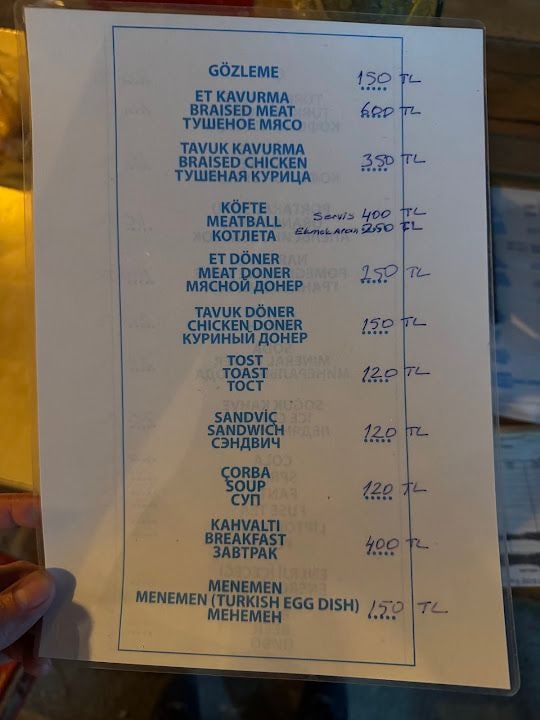 GÖZLEME 150 TL
ET KAVURMA
BRAISED MEAT 600 TL
ТУШЕНОЕ МЯСО
TAVUK KAVURMA
BRAISED CHICKEN 350 TL
ТУШЕНАЯ КУРИЦА
KÖFTE Servis 400 TL
MEATBALL Ekmek Arası 250 TL
КОТЛЕТА
ET DÖNER
MEAT DONER 250 TL
МЯСНОЙ ДОНЕР
TAVUK DÖNER
CHICKEN DONER 150 TL
КУРИНЫЙ ДОНЕР
TOST
TOAST 120 TL
ТОСТ
SANDVİÇ
SANDWICH 120 TL
СЭНДВИЧ
ÇORBA
SOUP 120 TL
СУП
KAHVALTI
BREAKFAST 400 TL
ЗАВТРАК
MENEMEN
MENEMEN (TURKISH EGG DISH) 150 TL
МЕНЕМЕН